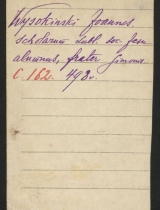 Wysokinski Joannes
scholarum Lubl. Soc. Jesu
alumnus, frater Simonis
C. 162. 492v